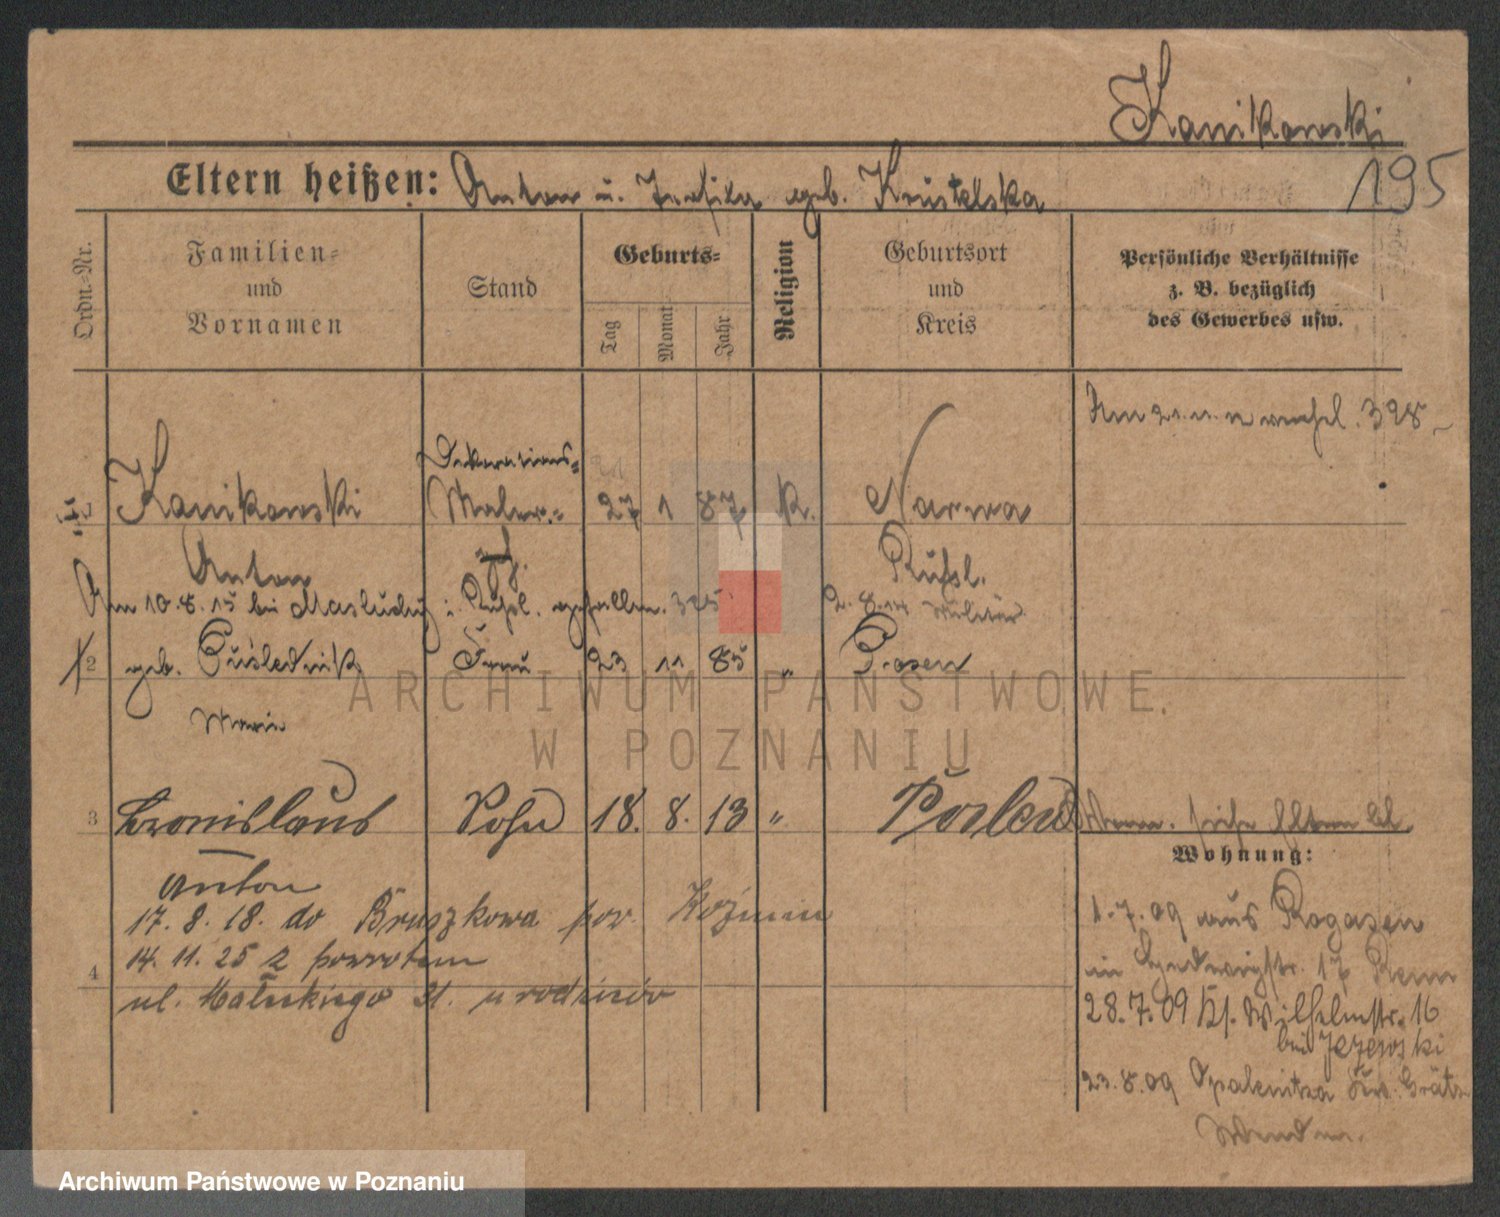 Kanikowski
195
Eltern heißen: Anton u. Teofila geb. Krustelska
Ordn.-Nr.
Familien- und Vornamen
Stand
Geburts-
Tag
Monat
Jahr
Religion
Geburtsort und Kreis
Persönliche Verhältnisse
z. B. bezüglich
des Gewerbes usw.
328
Kanikowski Dekorations-Maler 27 1 87 K. Narwa
Anton Rußl.
Am 10.8.15 bei i. Rußl. gefallen. 325 2.8.14 Militär
2 geb. Puslednik Frau 23 11 85 " Posen
Marie
3 Bronislaus Sohn 18. 8. 13 " Posen
Anton
Wohnung:
17. 8. 18. do Bruszkowa pow. Koźmin
14. 11. 25 z powrotem
4
ul. Małeckiego 21. u rodziców
1.7.09 aus Rogasen
in Hedwigstr. 17
28.7.09 Kl. Wilhelmstr. 16
bei Jezewski
23.8.09 Opalenitza Krs. Grätz
ARCHIWUM PAŃSTWOWE
W POZNANIU
Archiwum Państwowe w Poznaniu